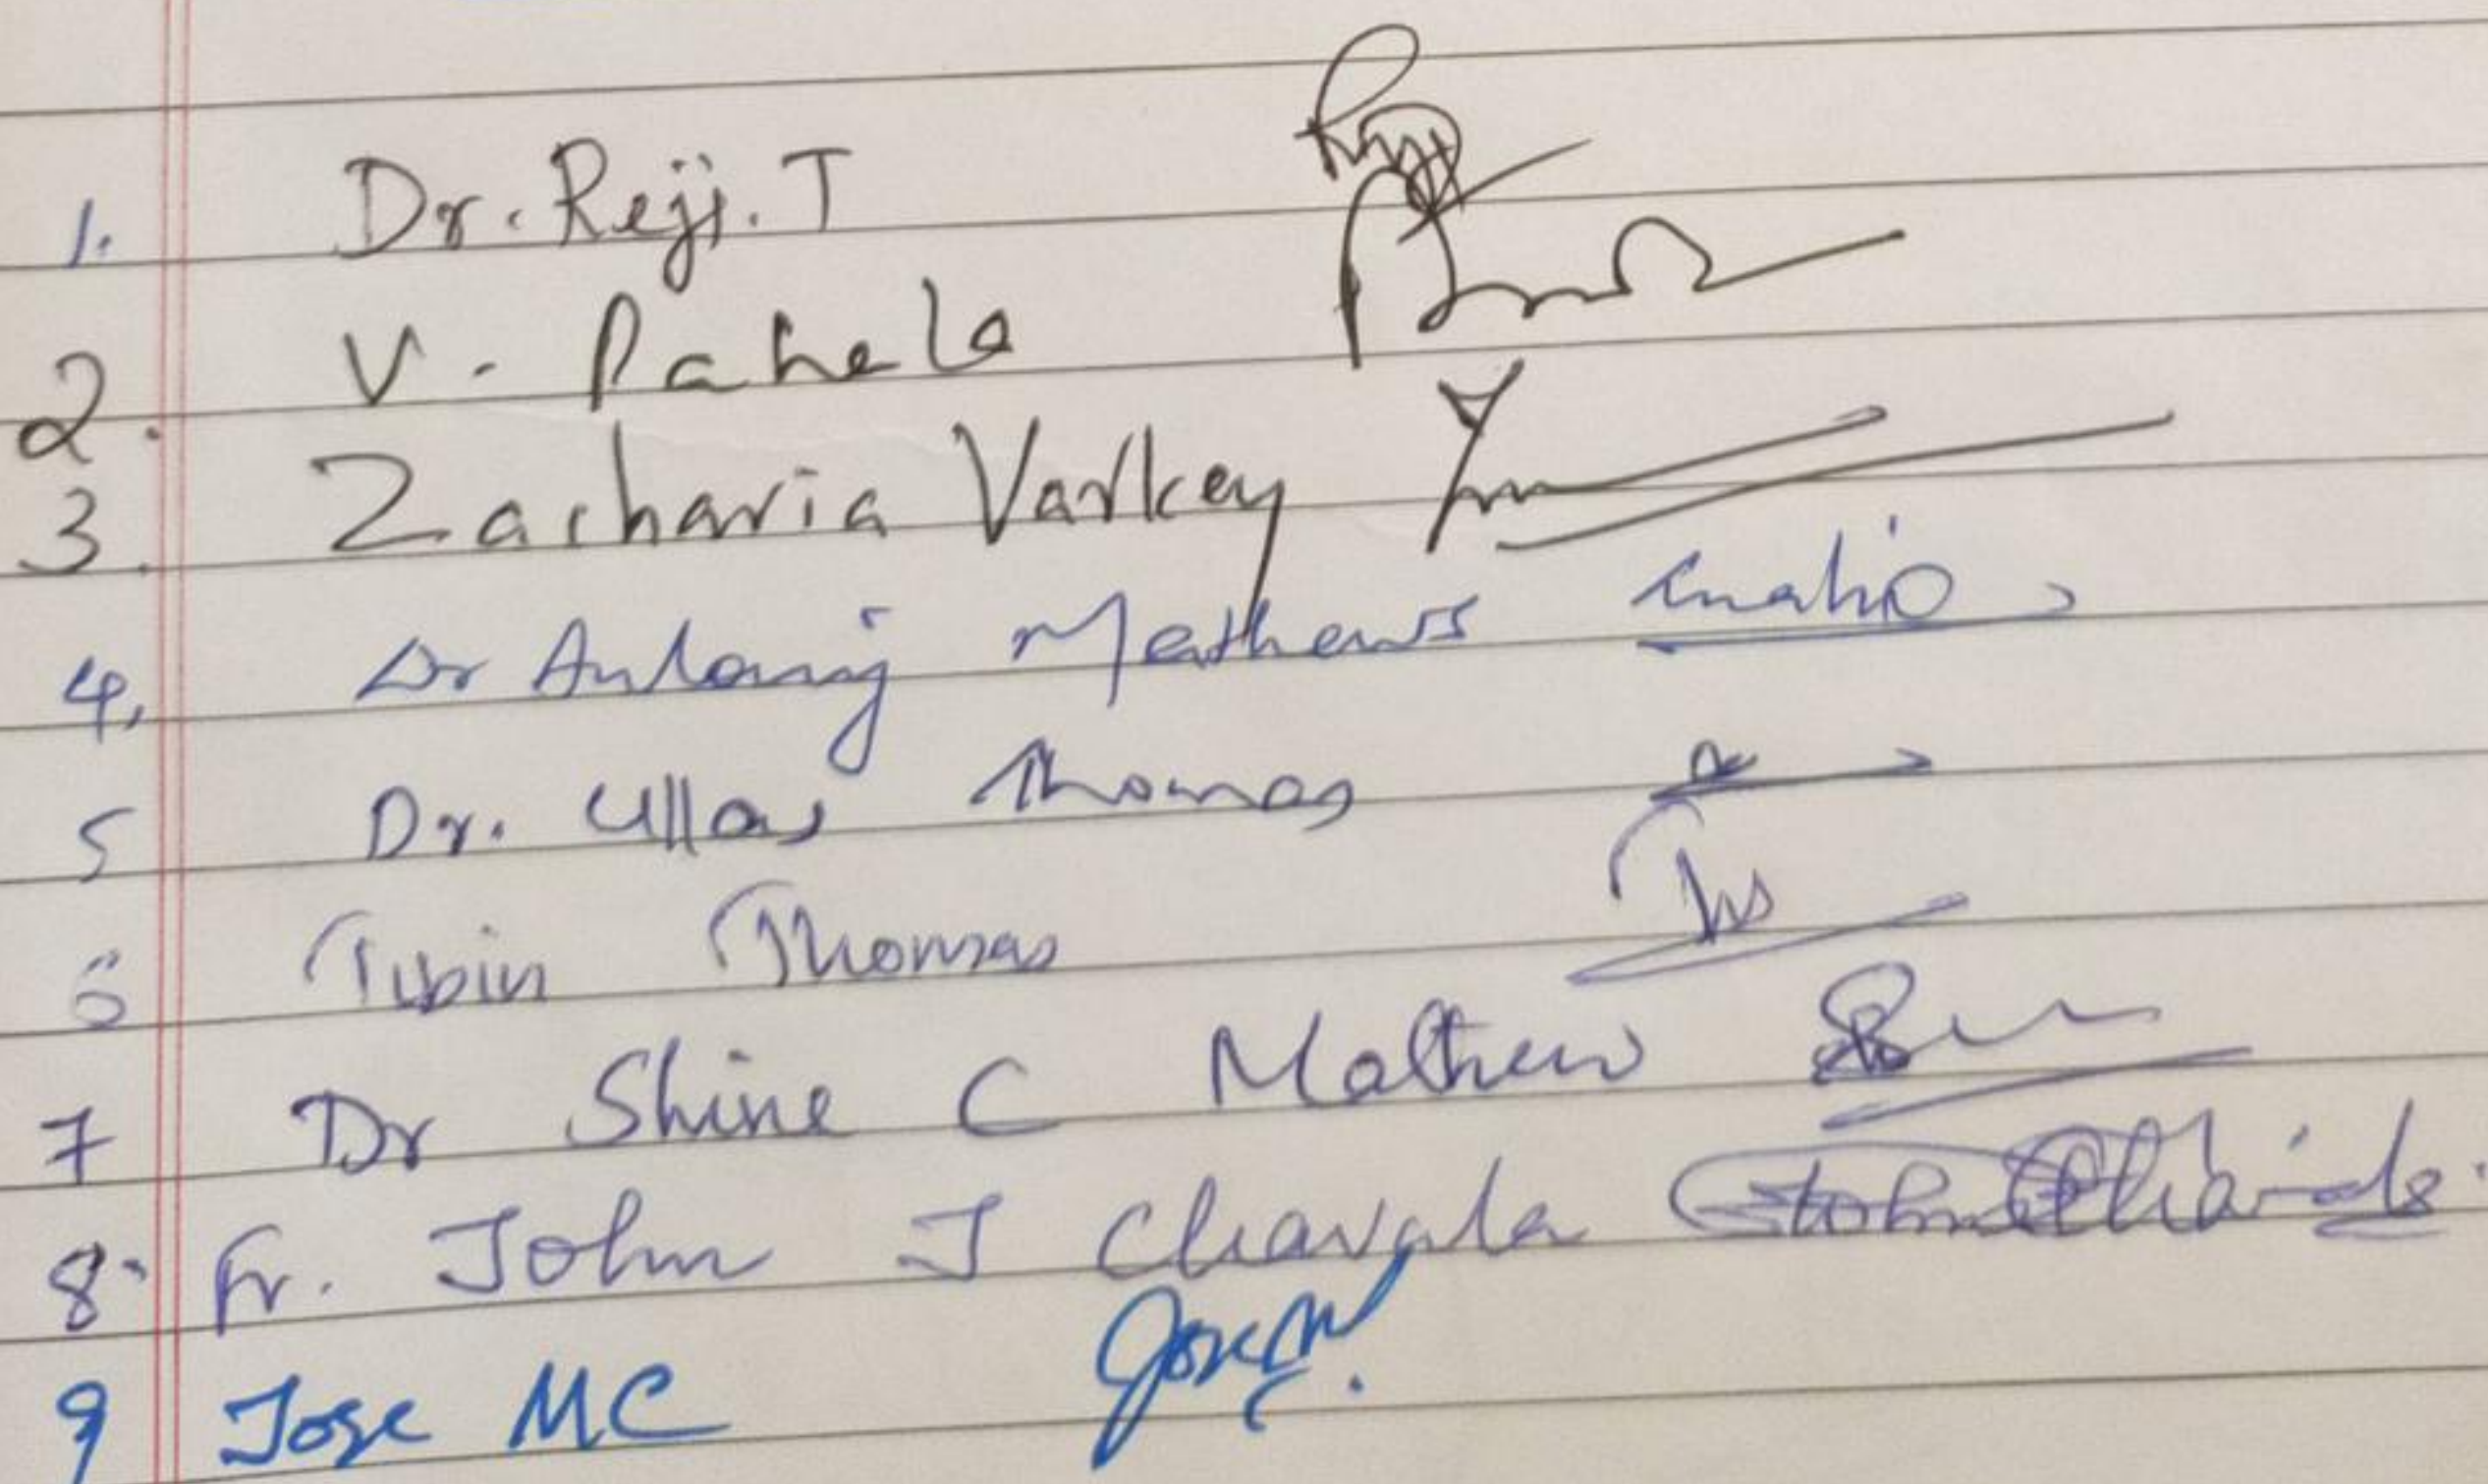 1. Dr. Reji. T
2. V. Pahele
3. Zacharia Varkey
4, Dr Antony Mathews
5 Dr. Ullas Thomas
6 Tibin Thomas
7 Dr Shine C Mathew
8. Fr. John J Chavala
9 Jose MC